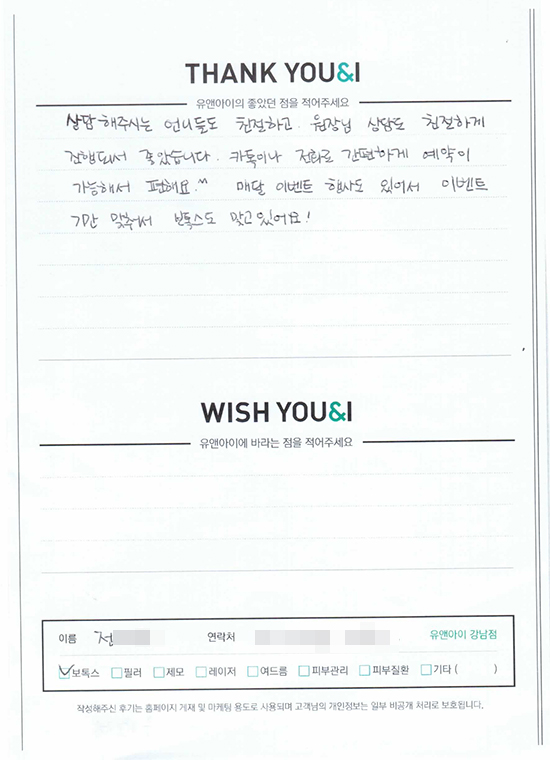 THANK YOU&I
유앤아이의 좋았던 점을 적어주세요
상담해주시는 언니들도 친절하고. 원장님 상담도 친절하게
진행되서 좋았습니다. 카톡이나 전화로 간편하게 예약이
가능해서 편해요.^^ 매달 이벤트 행사도 있어서 이벤트
기간 맞춰서 보톡스도 맞고있어요!
WISH YOU&I
유앤아이에 바라는 점을 적어주세요
이름 전 연락처 유앤아이 강남점
보톡스 필러 제모 레이저 여드름 피부관리 피부질환 기타 ( )
작성해주신 후기는 홈페이지 게재 및 마케팅 용도로 사용되며 고객님의 개인정보는 일부 비공개 처리로 보호됩니다.